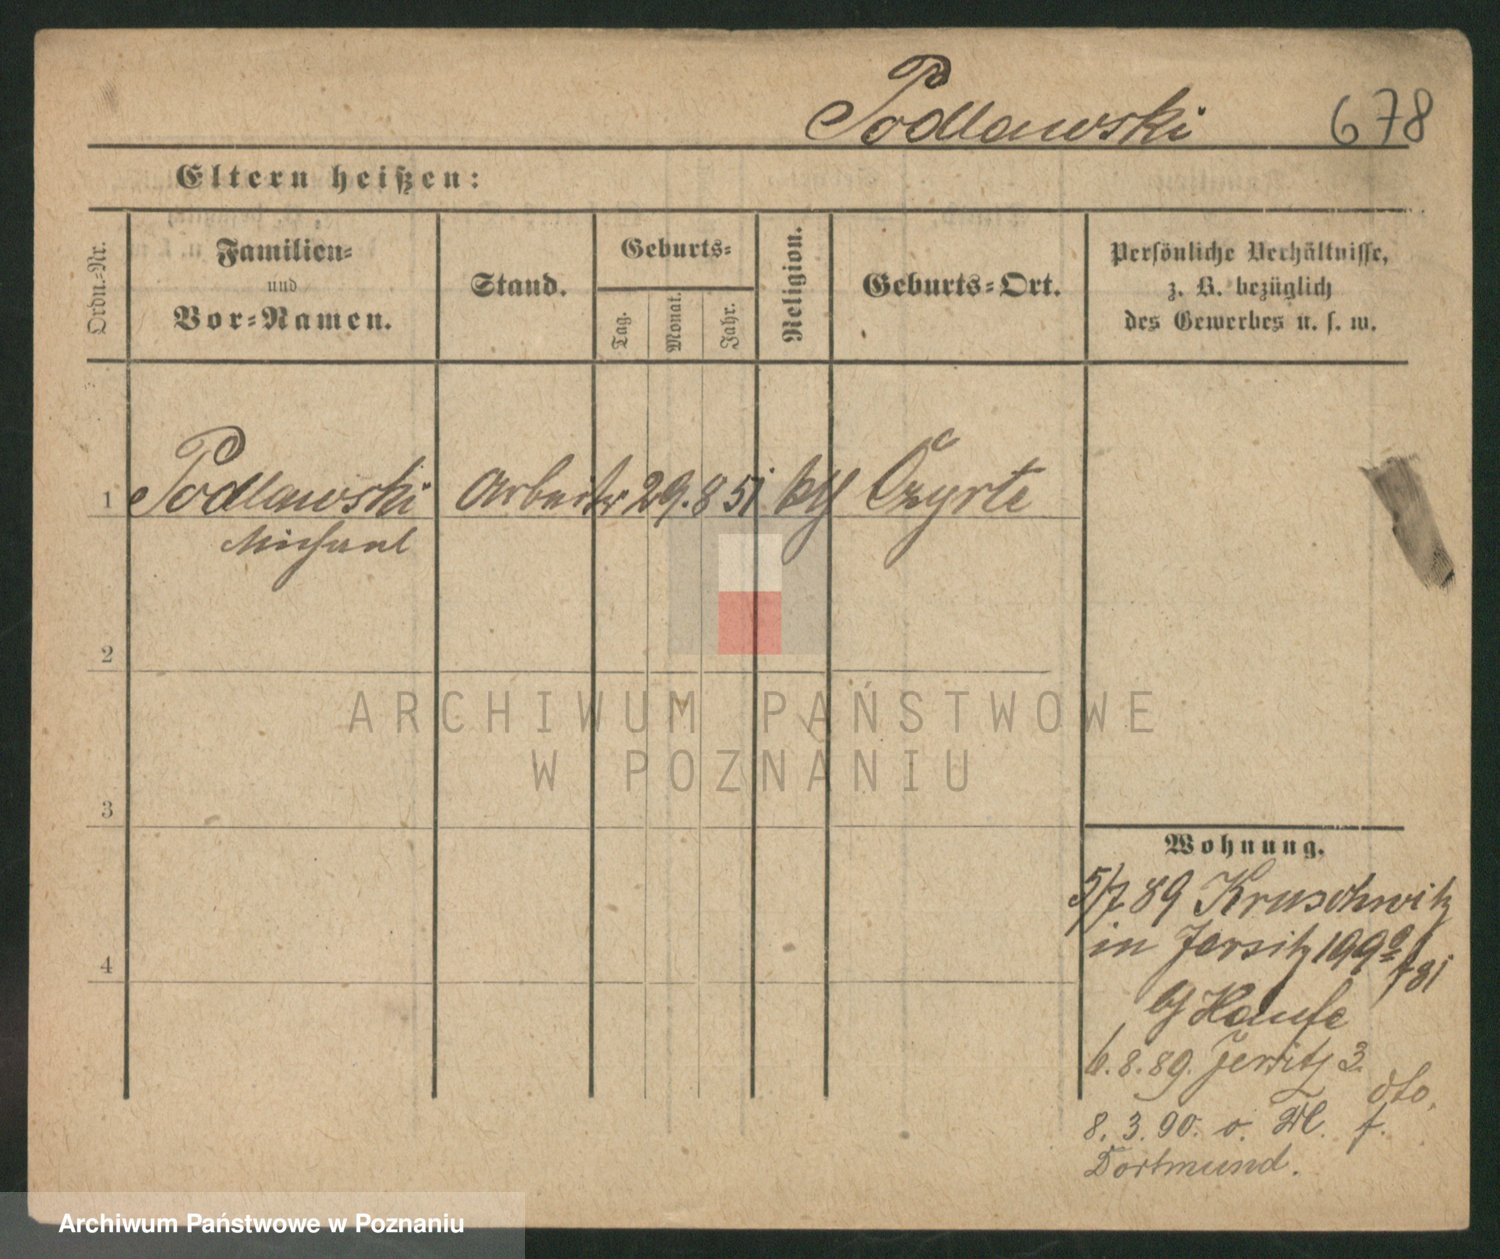 Podlawski 678
Eltern heißen:
Ordn.-Nr.
Familien-
und
Vor-Namen.
Stand.
Geburts-
Tag.
Monat.
Jahr.
Religion.
Geburts-Ort.
Persönliche Verhältnisse,
z. B. bezüglich
des Gewerbes u. s. w.
1 Podlawski Arbeiter 29. 8 51
Michael
2
3
4
Wohnung.
5/7 89 Kruschwitz
in Jersitz 199
6. 8. 89. Jersitz 3.
dto.
8. 3. 90. o. f.
Dortmund.
ARCHIWUM PAŃSTWOWE
W POZNANIU
Archiwum Państwowe w Poznaniu